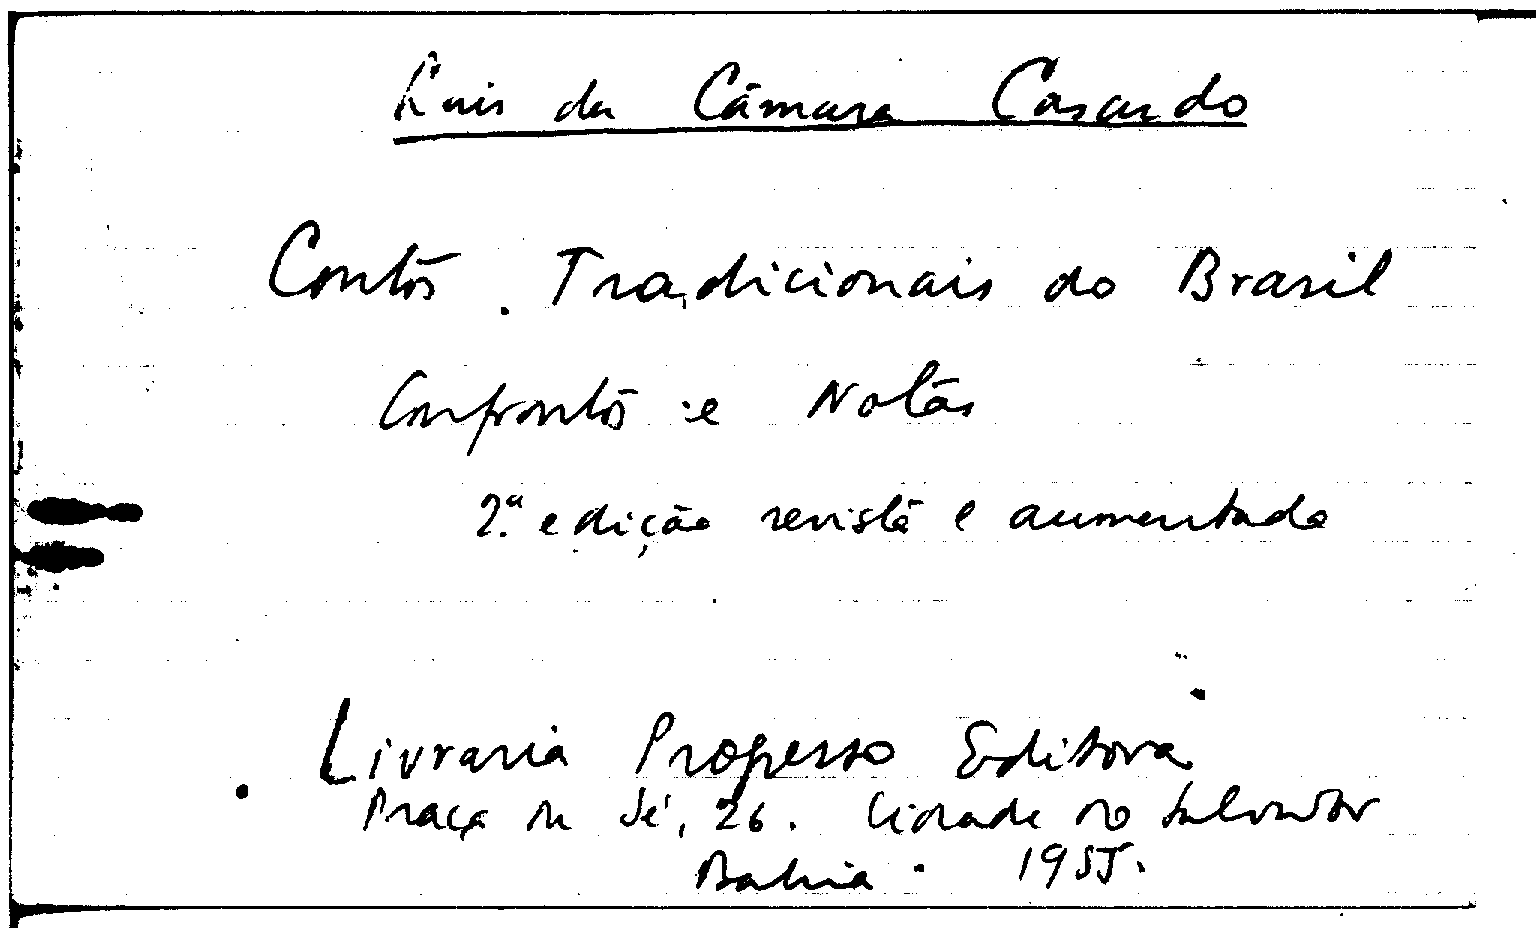 Luis da Câmara Cascudo
Contos Tradicionais do Brasil
Confrontos e Notas
2.ª edição revista e aumentada
Livraria Progresso Editora
Praça da Sé, 26. Cidade do Salvador
Bahia. 1955.